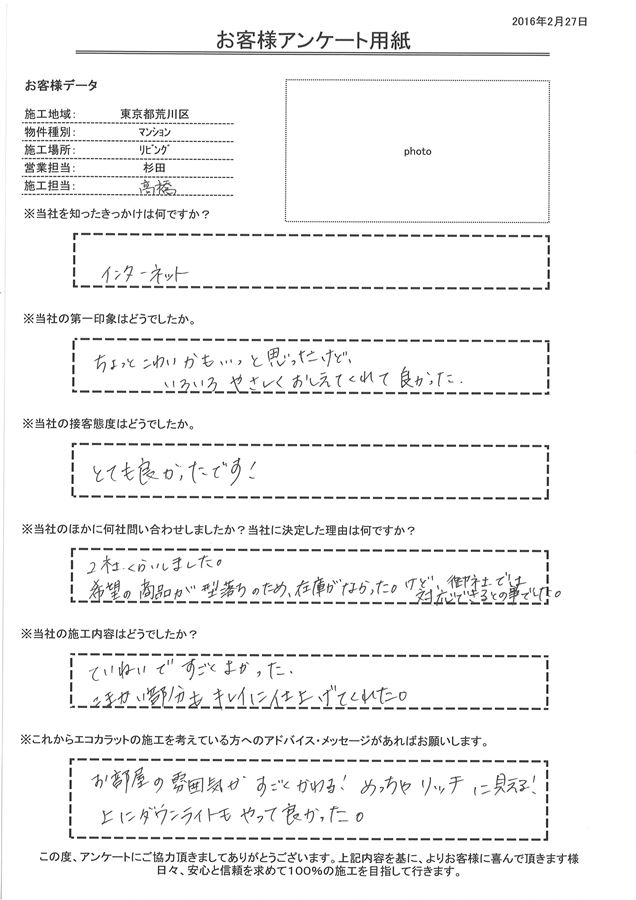 2016年2月27日
お客様アンケート用紙
お客様データ
施工地域: 東京都荒川区
物件種別: マンション
施工場所: リビング
営業担当: 杉田
施工担当: 高橋
photo
※当社を知ったきっかけは何ですか？
インターネット
※当社の第一印象はどうでしたか。
ちょっとこわいかも…っと思ったけど、
いろいろやさしくおしえてくれて良かった.
※当社の接客態度はどうでしたか。
とても良かったです!
※当社のほかに何社問い合わせしましたか？当社に決定した理由は何ですか？
2社くらいしました。
希望の商品が型落ちのため、在庫がなかった。けど、御社では
対応できるとの事でした。
※当社の施工内容はどうでしたか？
ていねいですごくよかった.
こまかい部分もキレイに仕上げてくれた。
※これからエコカラットの施工を考えている方へのアドバイス・メッセージがあればお願いします。
お部屋の雰囲気がすごくかわる! めっちゃリッチに見える!
上にダウンライトもやって良かった。
この度、アンケートにご協力頂きましてありがとうございます。上記内容を基に、よりお客様に喜んで頂きます様
日々、安心と信頼を求めて100%の施工を目指して行きます。